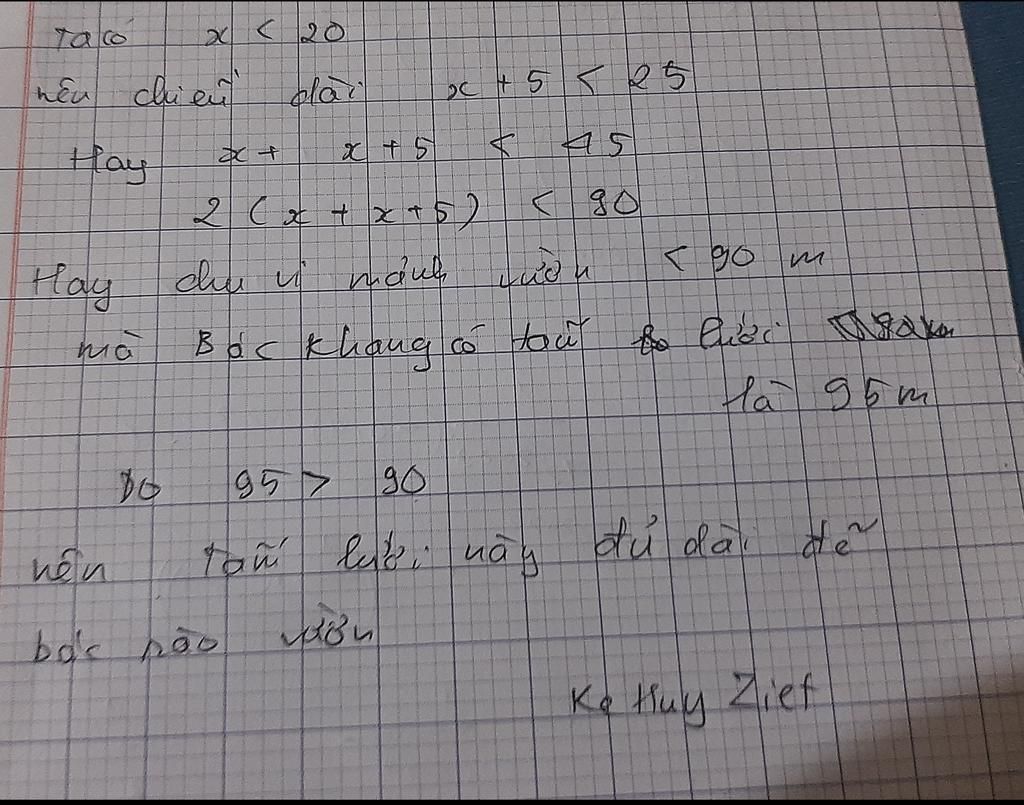 Ta có x < 20
nên chiều dài x + 5 < 25
Hay x + x + 5 < 45
2 (x + x + 5) < 90
Hay chu vi mảnh vườn < 90 m
mà Bác Khang có tấm lưới
là 95 m
Do 95 > 90
nên Tấm lưới này đủ dài để
bác rào vườn
Kq Huy Zief